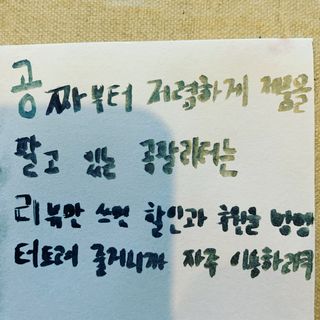 공짜부터 저렴하게 제품을
팔고 있는 공팔리터는
리뷰만 쓰면 할인과 후원을 빵빵
터트려 줄거니까 자주 이용하리